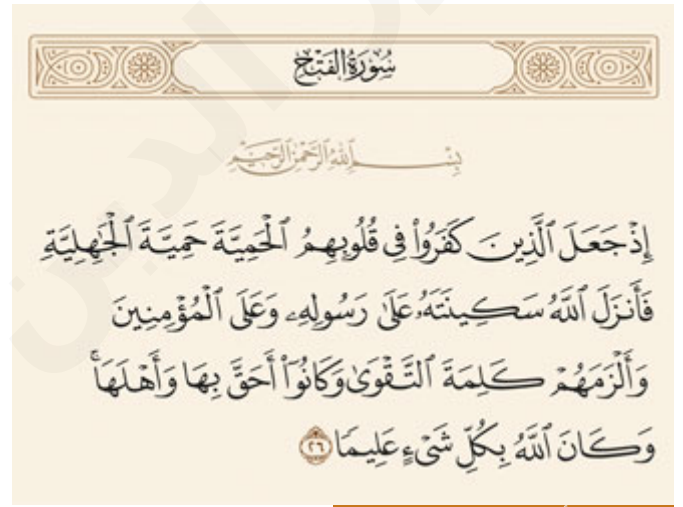 سُورَةُ الفَتْحِ
بِسْمِ ٱللَّهِ ٱلرَّحْمَٰنِ ٱلرَّحِيمِ
إِذْ جَعَلَ ٱلَّذِينَ كَفَرُوا۟ فِى قُلُوبِهِمُ ٱلْحَمِيَّةَ حَمِيَّةَ ٱلْجَٰهِلِيَّةِ
فَأَنزَلَ ٱللَّهُ سَكِينَتَهُۥ عَلَىٰ رَسُولِهِۦ وَعَلَى ٱلْمُؤْمِنِينَ
وَأَلْزَمَهُمْ كَلِمَةَ ٱلتَّقْوَىٰ وَكَانُوٓا۟ أَحَقَّ بِهَا وَأَهْلَهَا ۚ
وَكَانَ ٱللَّهُ بِكُلِّ شَىْءٍ عَلِيمًا ٢٦